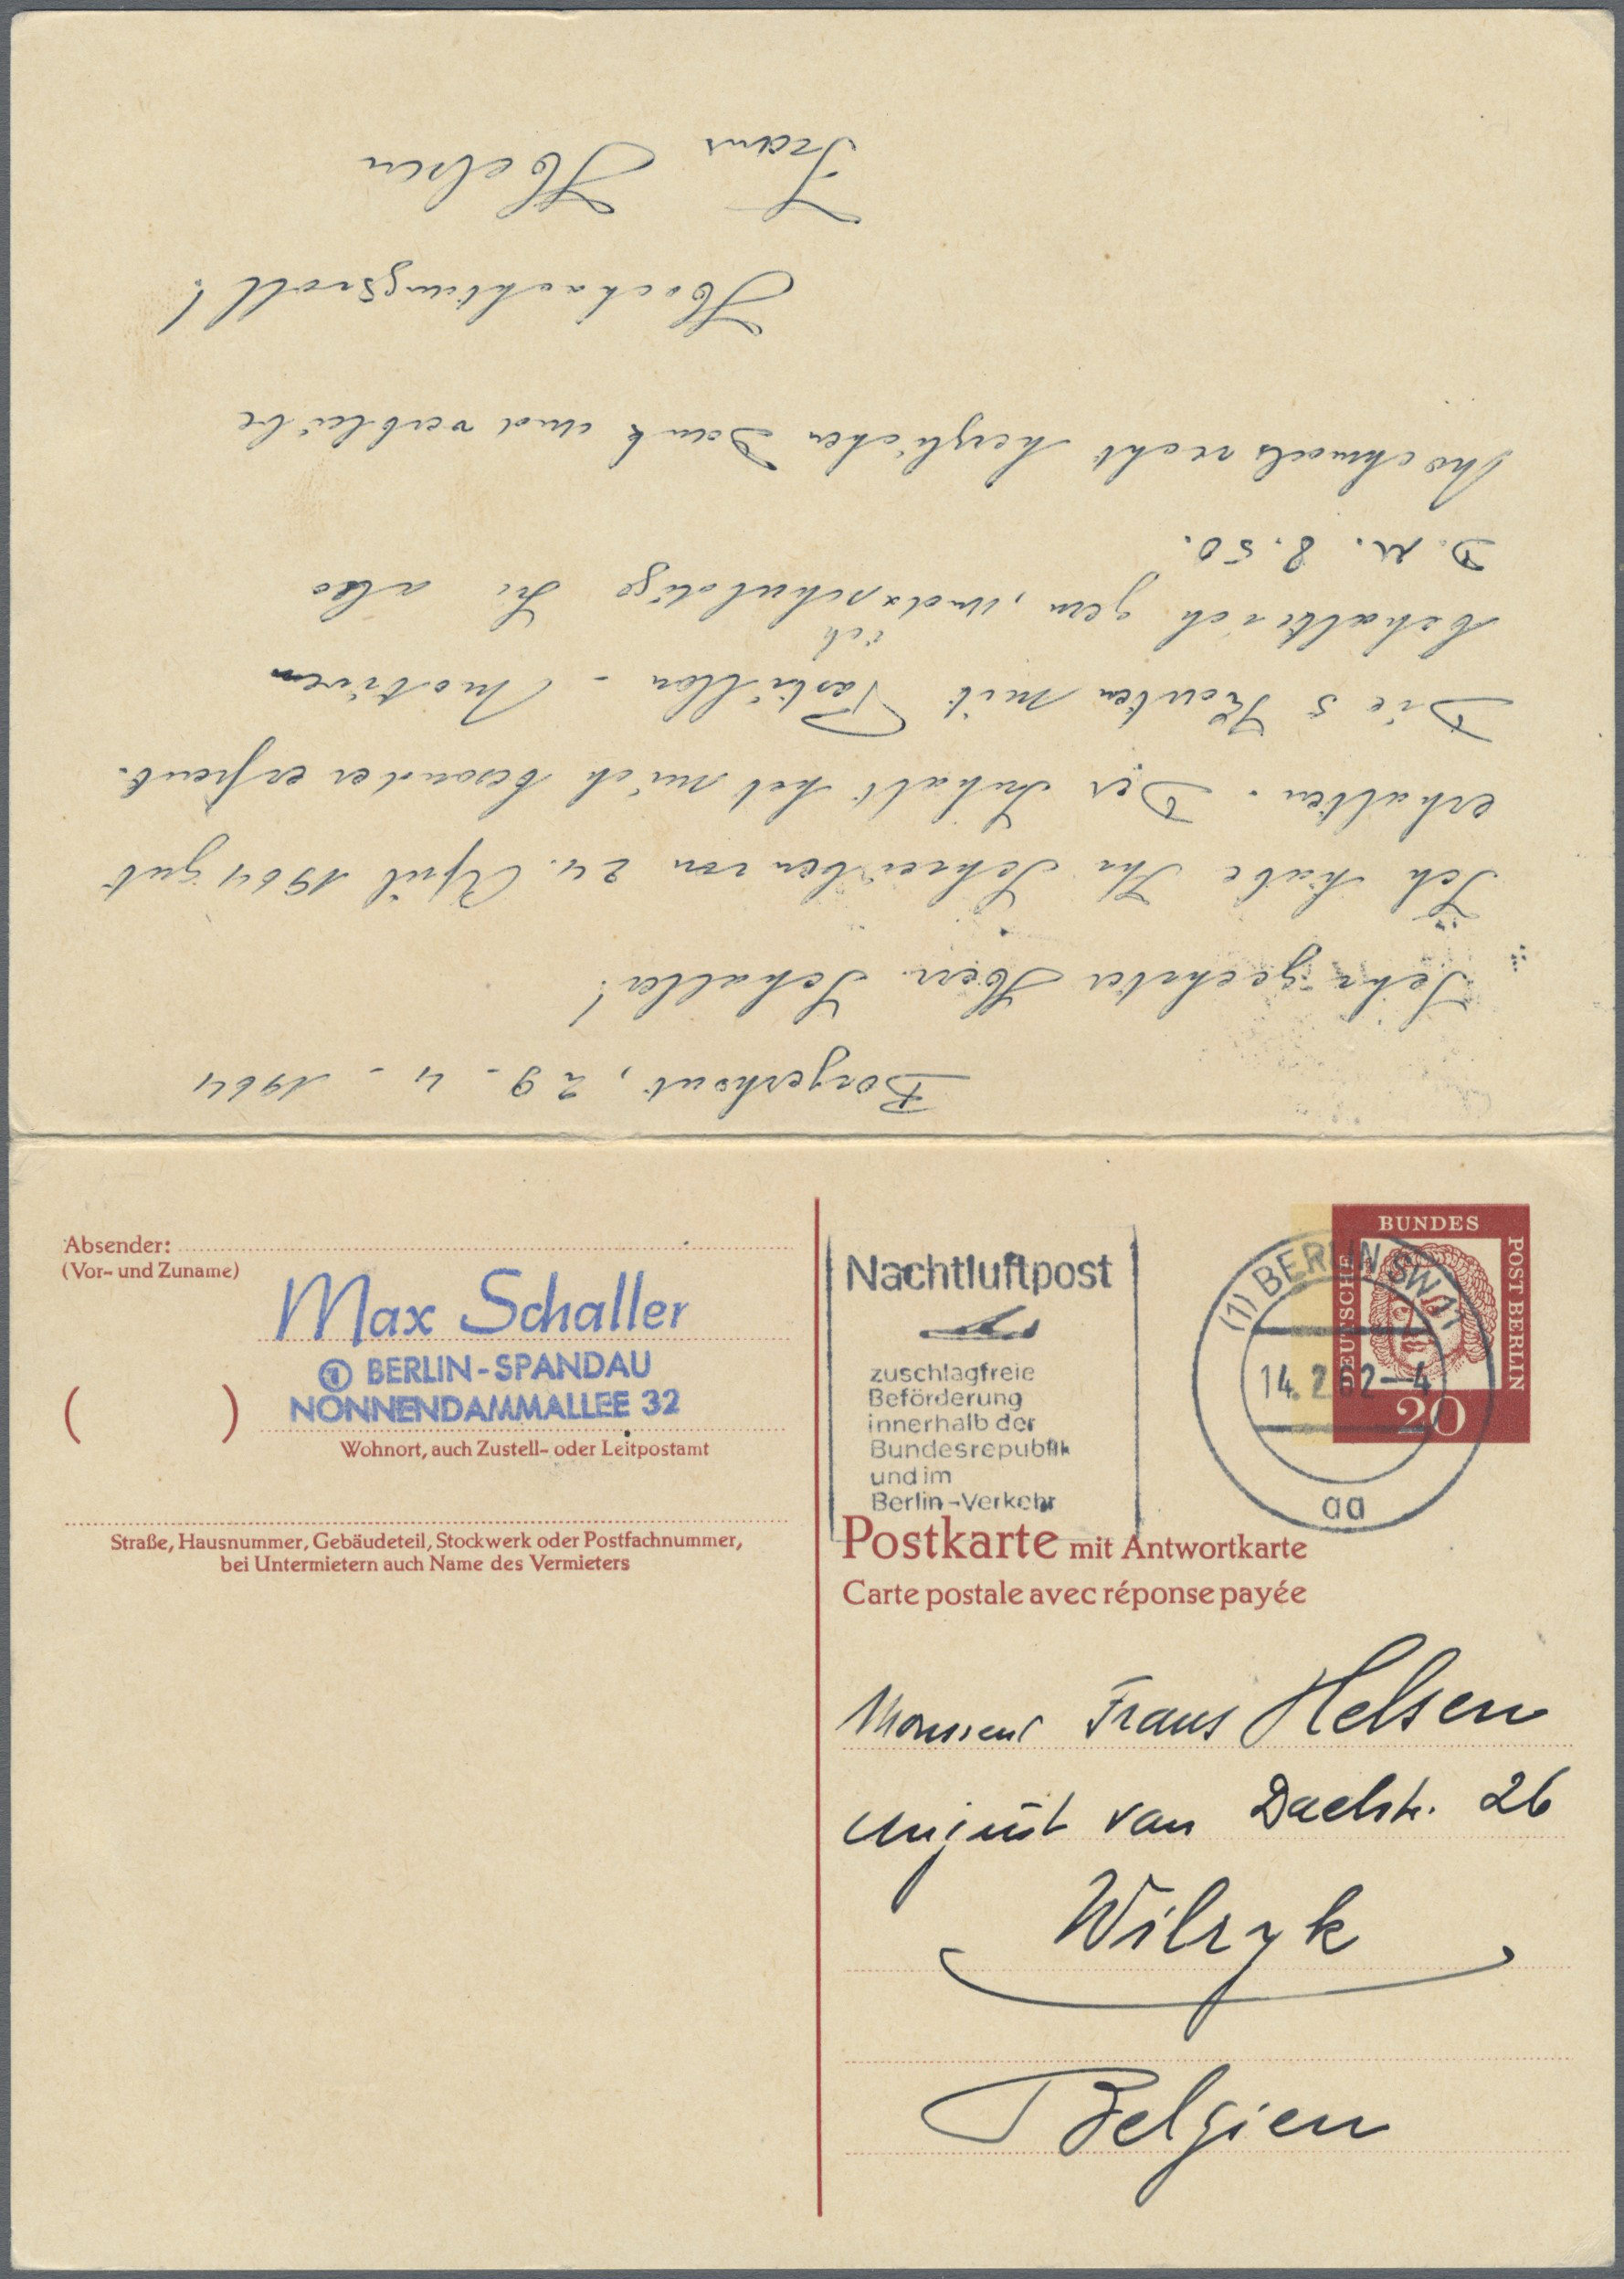 Borgerhout, 29-4-1964
Sehr geehrter Herr Schaller!
Ich habe Ihr Schreiben von 24. April 1964 gut
erhalten. Der Inhalt hat mich besonder erfreut.
Die 5 Karten mit Postillon - Motiven
behalte ich gern, und ich schuldige Sie also
D.M. 8.50.
Nochmals recht herzlichen Dank und verbleibe
Hochachtungsvoll!
Frans Helsen
Absender:
(Vor- und Zuname)
Max Schaller
(1) BERLIN-SPANDAU
NONNENDAMMALLEE 32
( )
Wohnort, auch Zustell- oder Leitpostamt
Straße, Hausnummer, Gebäudeteil, Stockwerk oder Postfachnummer,
bei Untermietern auch Name des Vermieters
Nachtluftpost
zuschlagfreie
Beförderung
innerhalb der
Bundesrepublik
und im
Berlin-Verkehr
(1) BERLIN SW 11
14.2.62--4
aa
DEUTSCHE
BUNDES
POST BERLIN
20
Postkarte mit Antwortkarte
Carte postale avec réponse payée
Monsieur Frans Helsen
August van Daelstr. 26
Wilryk
Belgien